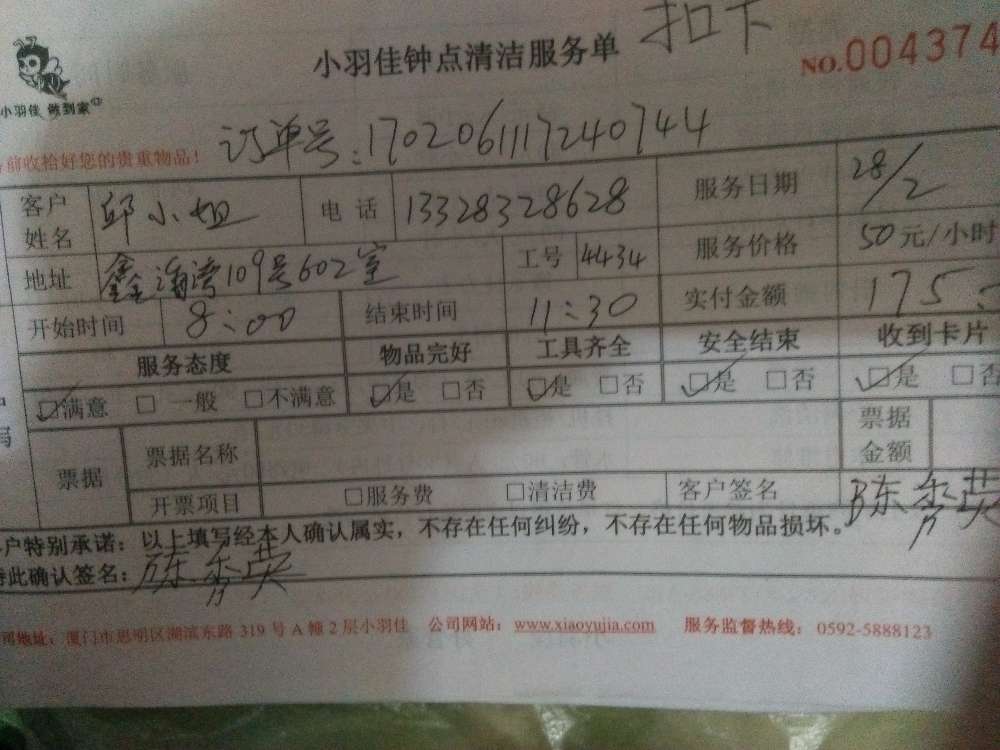 扣下
小羽佳钟点清洁服务单 NO.004374
小羽佳 做到家
订单号:1702061117240744
前收拾好您的贵重物品!
客户姓名 邱小姐 电话 13328328628 服务日期 28/2
地址 鑫海湾109号602室 工号 4434 服务价格 50元/小时
开始时间 8:00 结束时间 11:30 实付金额 175
服务态度 物品完好 工具齐全 安全结束 收到卡片
☑满意 □一般 □不满意 ☑是 □否 ☑是 □否 ☑是 □否 ☑是 □否
票据 票据名称 票据金额
开票项目 □服务费 □清洁费 客户签名 陈秀英
户特别承诺:以上填写经本人确认属实,不存在任何纠纷,不存在任何物品损坏。
此确认签名:陈秀英
司地址:厦门市思明区湖滨东路319号A幢2层小羽佳 公司网站:www.xiaoyujia.com 服务监督热线:0592-5888123